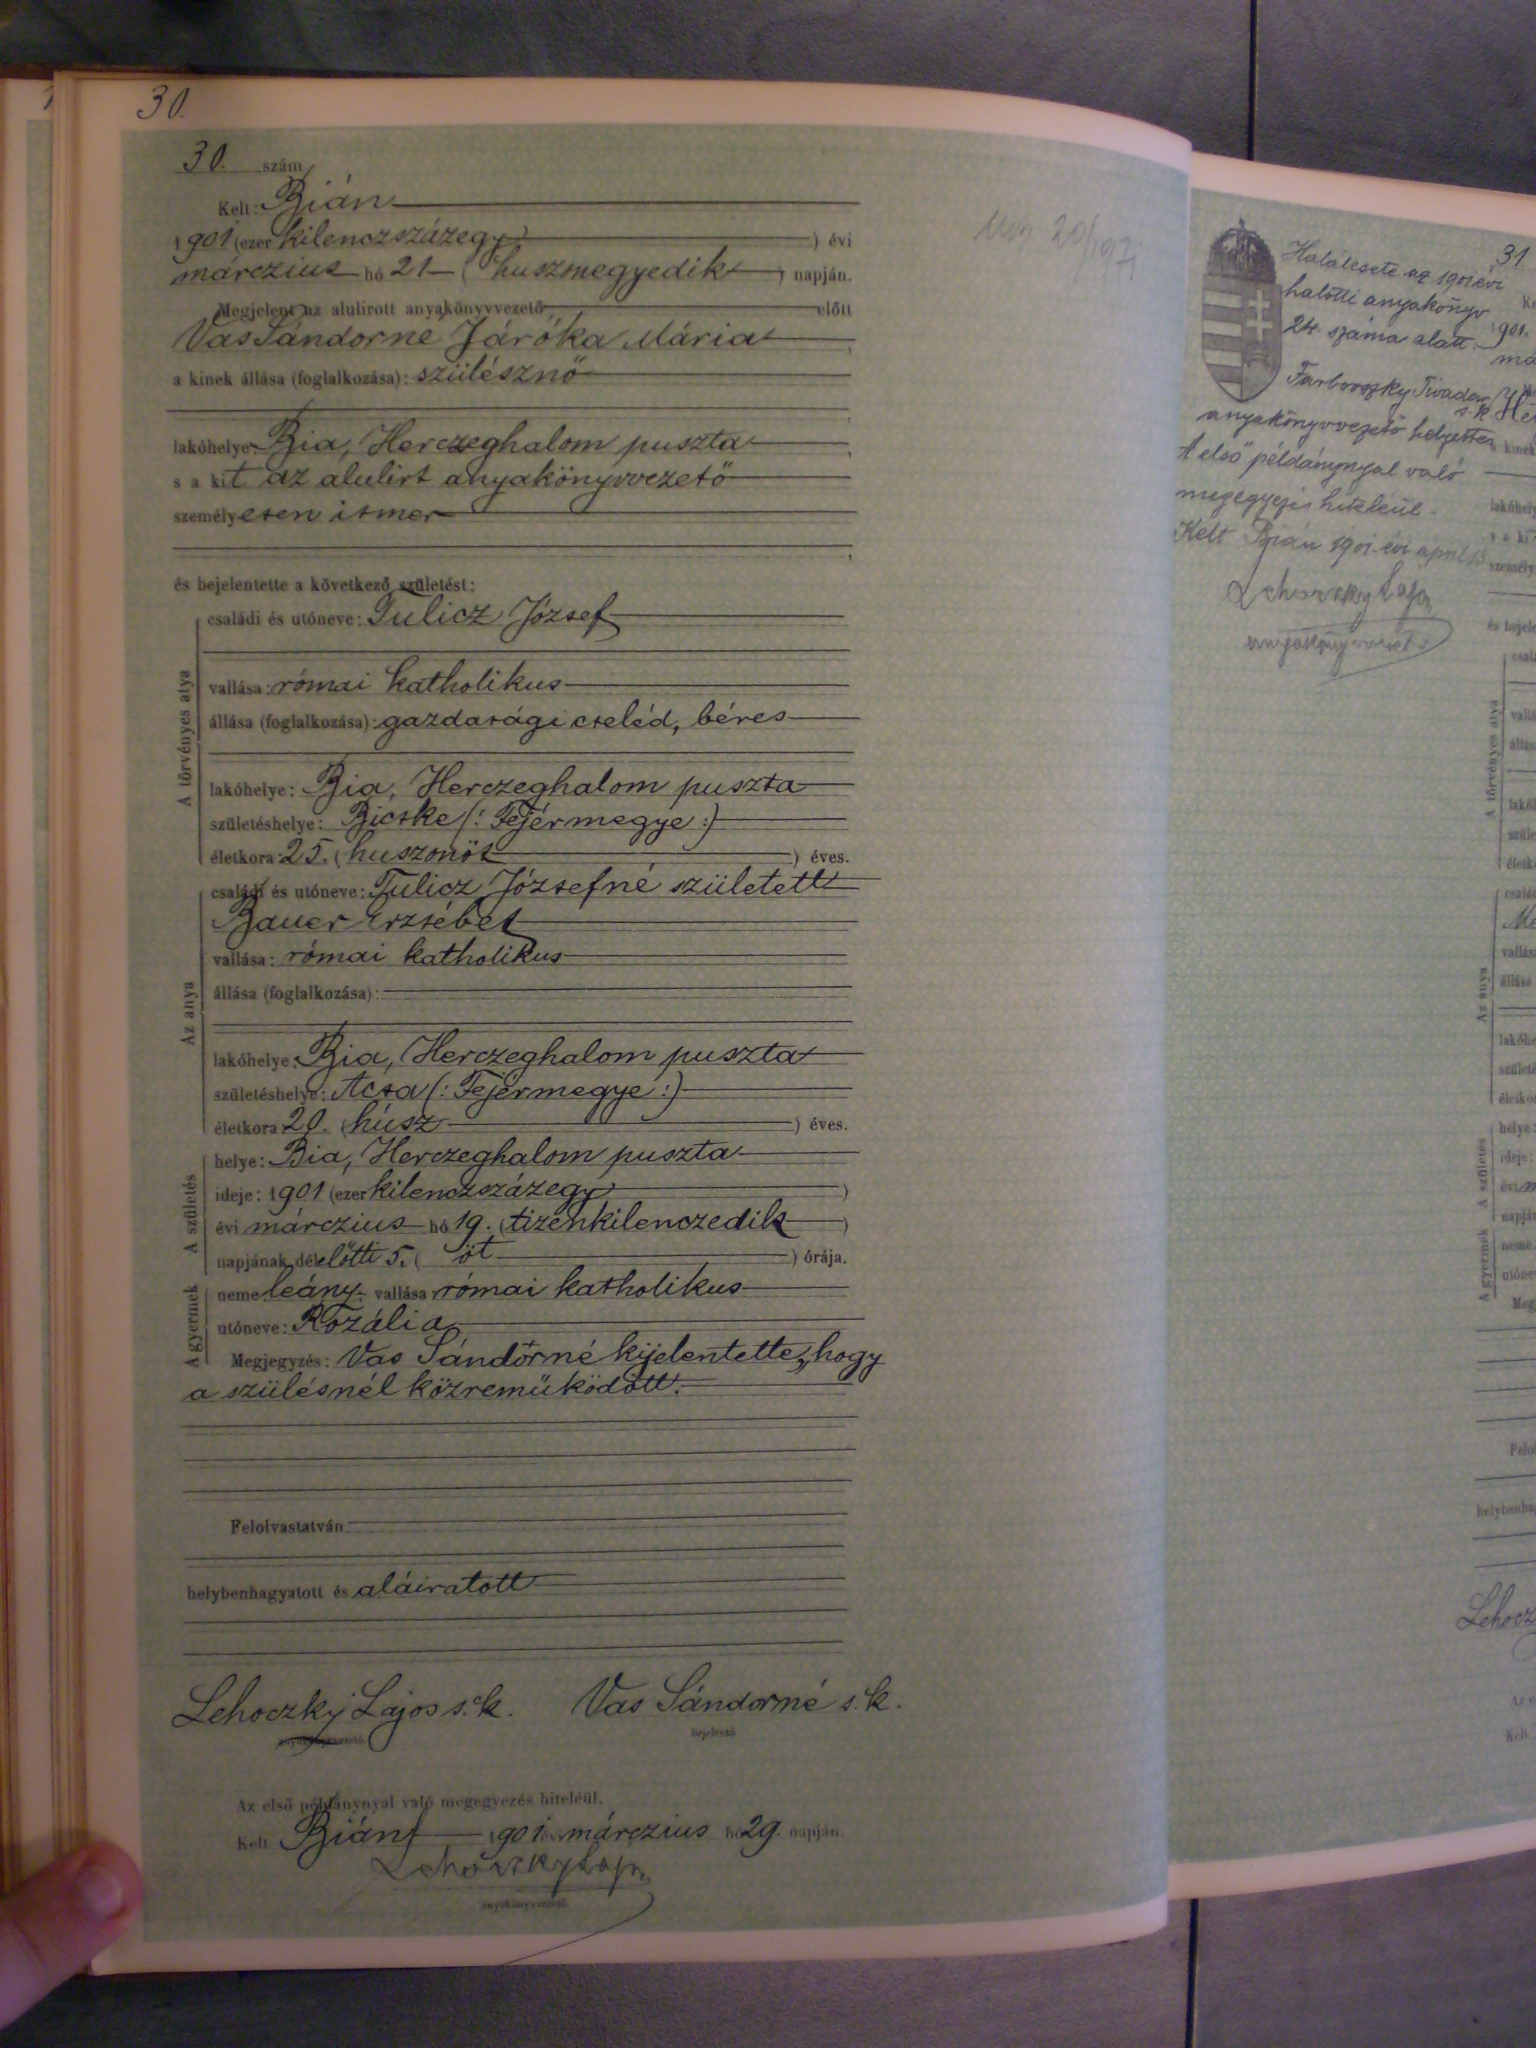 30.
30. szám
Kelt: Bián
1901 (ezer kilenczszázegy) évi
márczius hó 21 (huszonegyedik) napján.
Megjelent az alulirott anyakönyvvezető előtt
Vas Sándorné Járóka Mária
a kinek állása (foglalkozása): szülésznő
lakóhelye Bia, Herczeghalom puszta
s a kit az alulirt anyakönyvvezető
személyesen ismer
és bejelentette a következő születést:
A törvényes atya
családi és utóneve: Tulicz József
vallása: római katholikus
állása (foglalkozása): gazdasági cseléd, béres
lakóhelye: Bia, Herczeghalom puszta
születéshelye: Bicske (: Fejérmegye :)
életkora: 25. (huszonöt) éves.
Az anya
családi és utóneve: Tulicz Józsefné született
Bauer Erzsébet
vallása: római katholikus
állása (foglalkozása):
lakóhelye: Bia, Herczeghalom puszta
születéshelye: Acsa (: Fejérmegye :)
életkora 20. (húsz) éves.
A születés
helye: Bia, Herczeghalom puszta
ideje: 1901 (ezer kilenczszázegy)
évi márczius hó 19. (tizenkilenczedik)
napjának délelőtti 5. (öt) órája.
A gyermek
neme leány vallása római katholikus
utóneve: Rozália
Megjegyzés: Vas Sándorné kijelentette, hogy
a szülésnél közreműködött.
Felolvastatván
helybenhagyatott és aláiratott
Lehoczky Lajos s.k. Vas Sándorné s.k.
anyakönyvvezető bejelentő
Az első példánynyal való megegyezés hiteléül.
Kelt Bián 1901 évi márczius hó 29. napján.
Lehoczky Lajos
anyakönyvvezető
31.
Halálesete az 1901 évi
halotti anyakönyv
24. száma alatt
Tivadar s.k.
anyakönyvvezető helyettes
A első példánynyal való
megegyezés hiteléül.
Kelt Bián 1901. évi april 13
Lehoczky Lajos
anyakönyvvezető